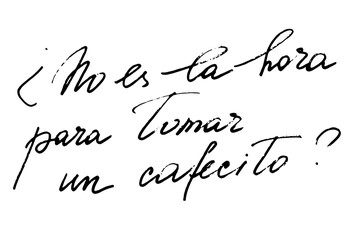 ¿No es la hora
para tomar
un cafecito?